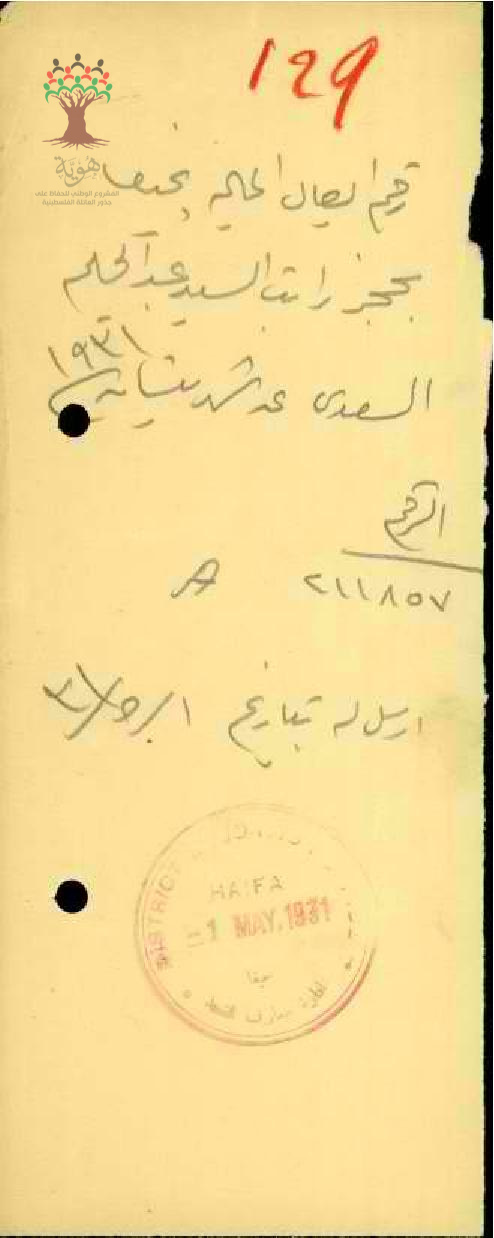 129
هوية
المشروع الوطني للحفاظ على
جذور العائلة الفلسطينية
رقم ايصال المالية بحيفا
بحجز راتب السيد عبد الحليم
السعدي عن شهر نيسان
١٩٣١
الرقم
A ٢١١٨٥٧
ارسل له بتاريخ ١/٥/٣١
DISTRICT
HAIFA
-1 MAY.1931
حيفا
ادارة معارف